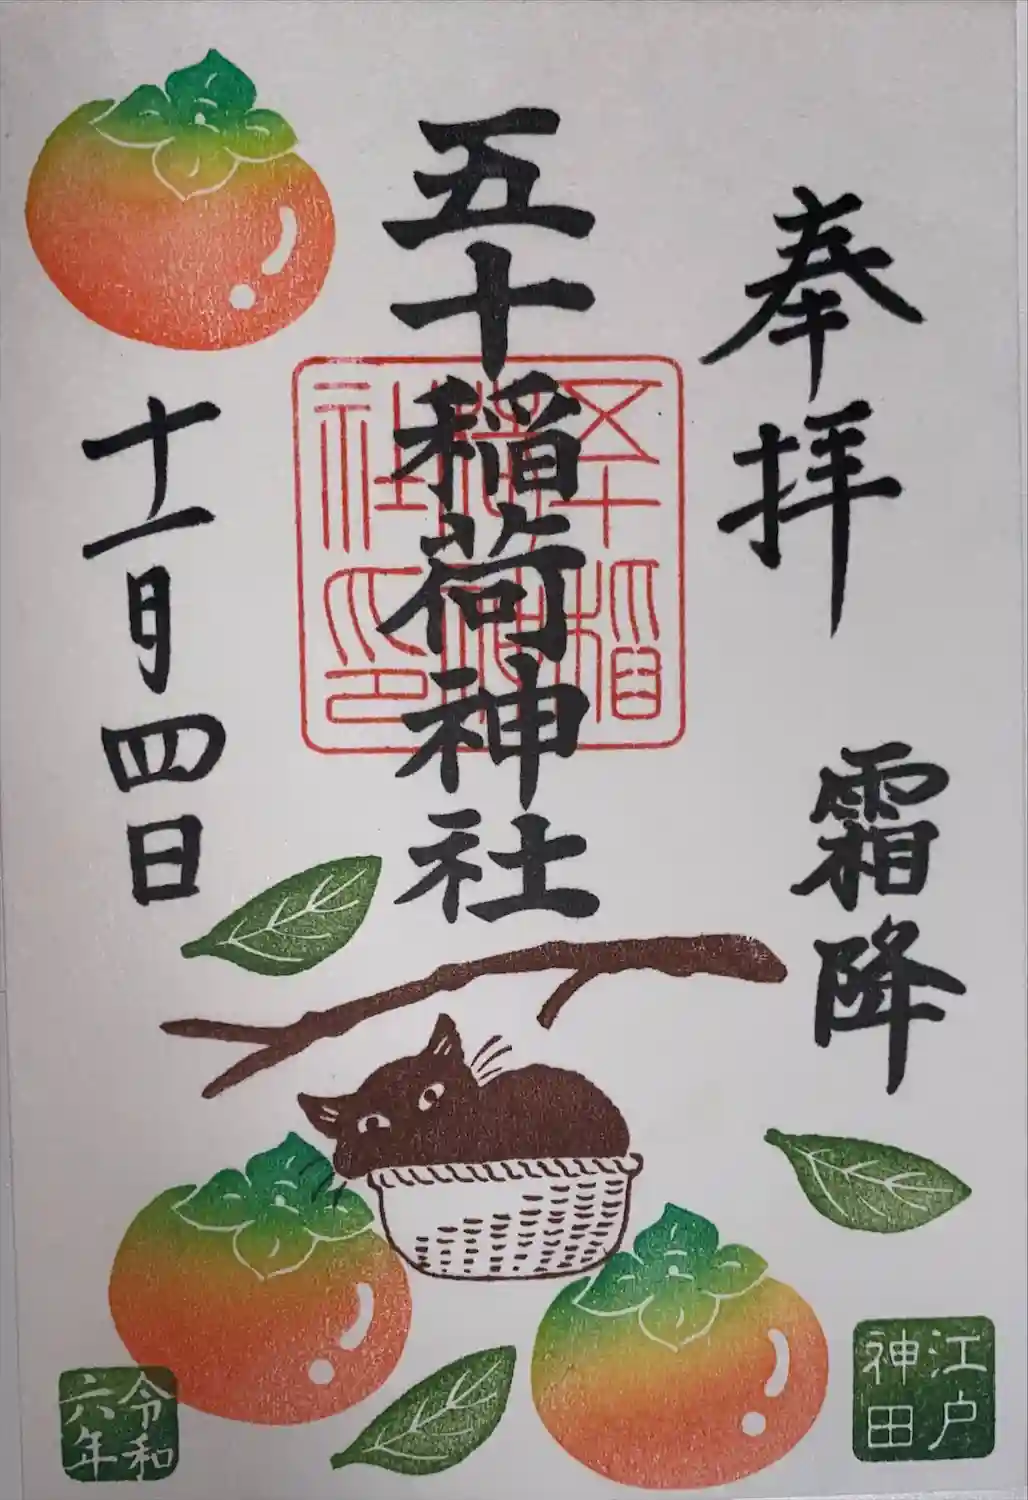 奉拝
霜降
五十稲荷神社
五十稲
社印
十一月四日
江戸
神田
令和
六年